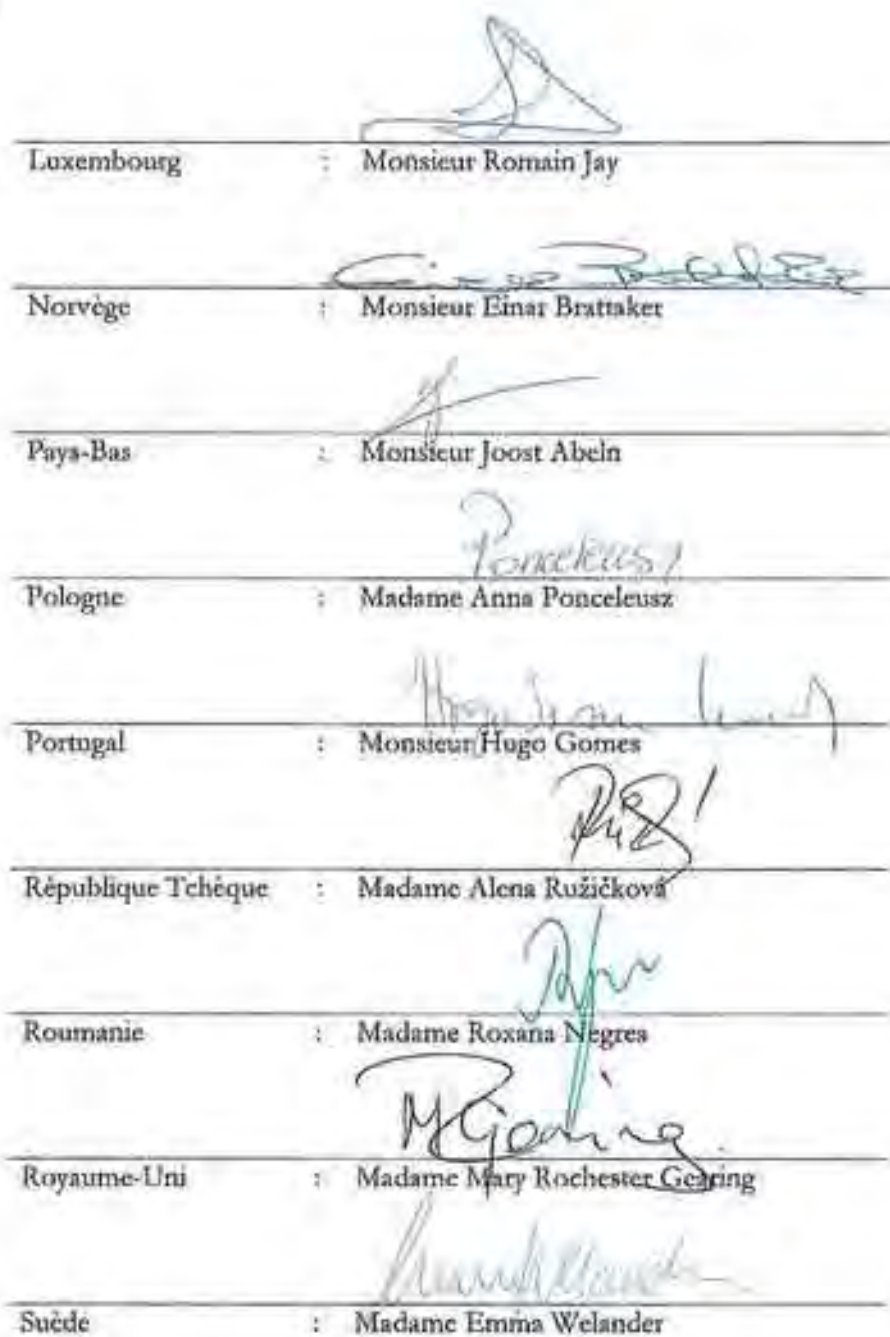 Luxembourg : Monsieur Romain Jay
Norvège : Monsieur Einar Brattaker
Pays-Bas : Monsieur Joost Abeln
Ponceleusz
Pologne : Madame Anna Ponceleusz
Portugal : Monsieur Hugo Gomes
République Tchèque : Madame Alena Ružičková
Roumanie : Madame Roxana Negres
MRGearing
Royaume-Uni : Madame Mary Rochester Gearing
Suède : Madame Emma Welander